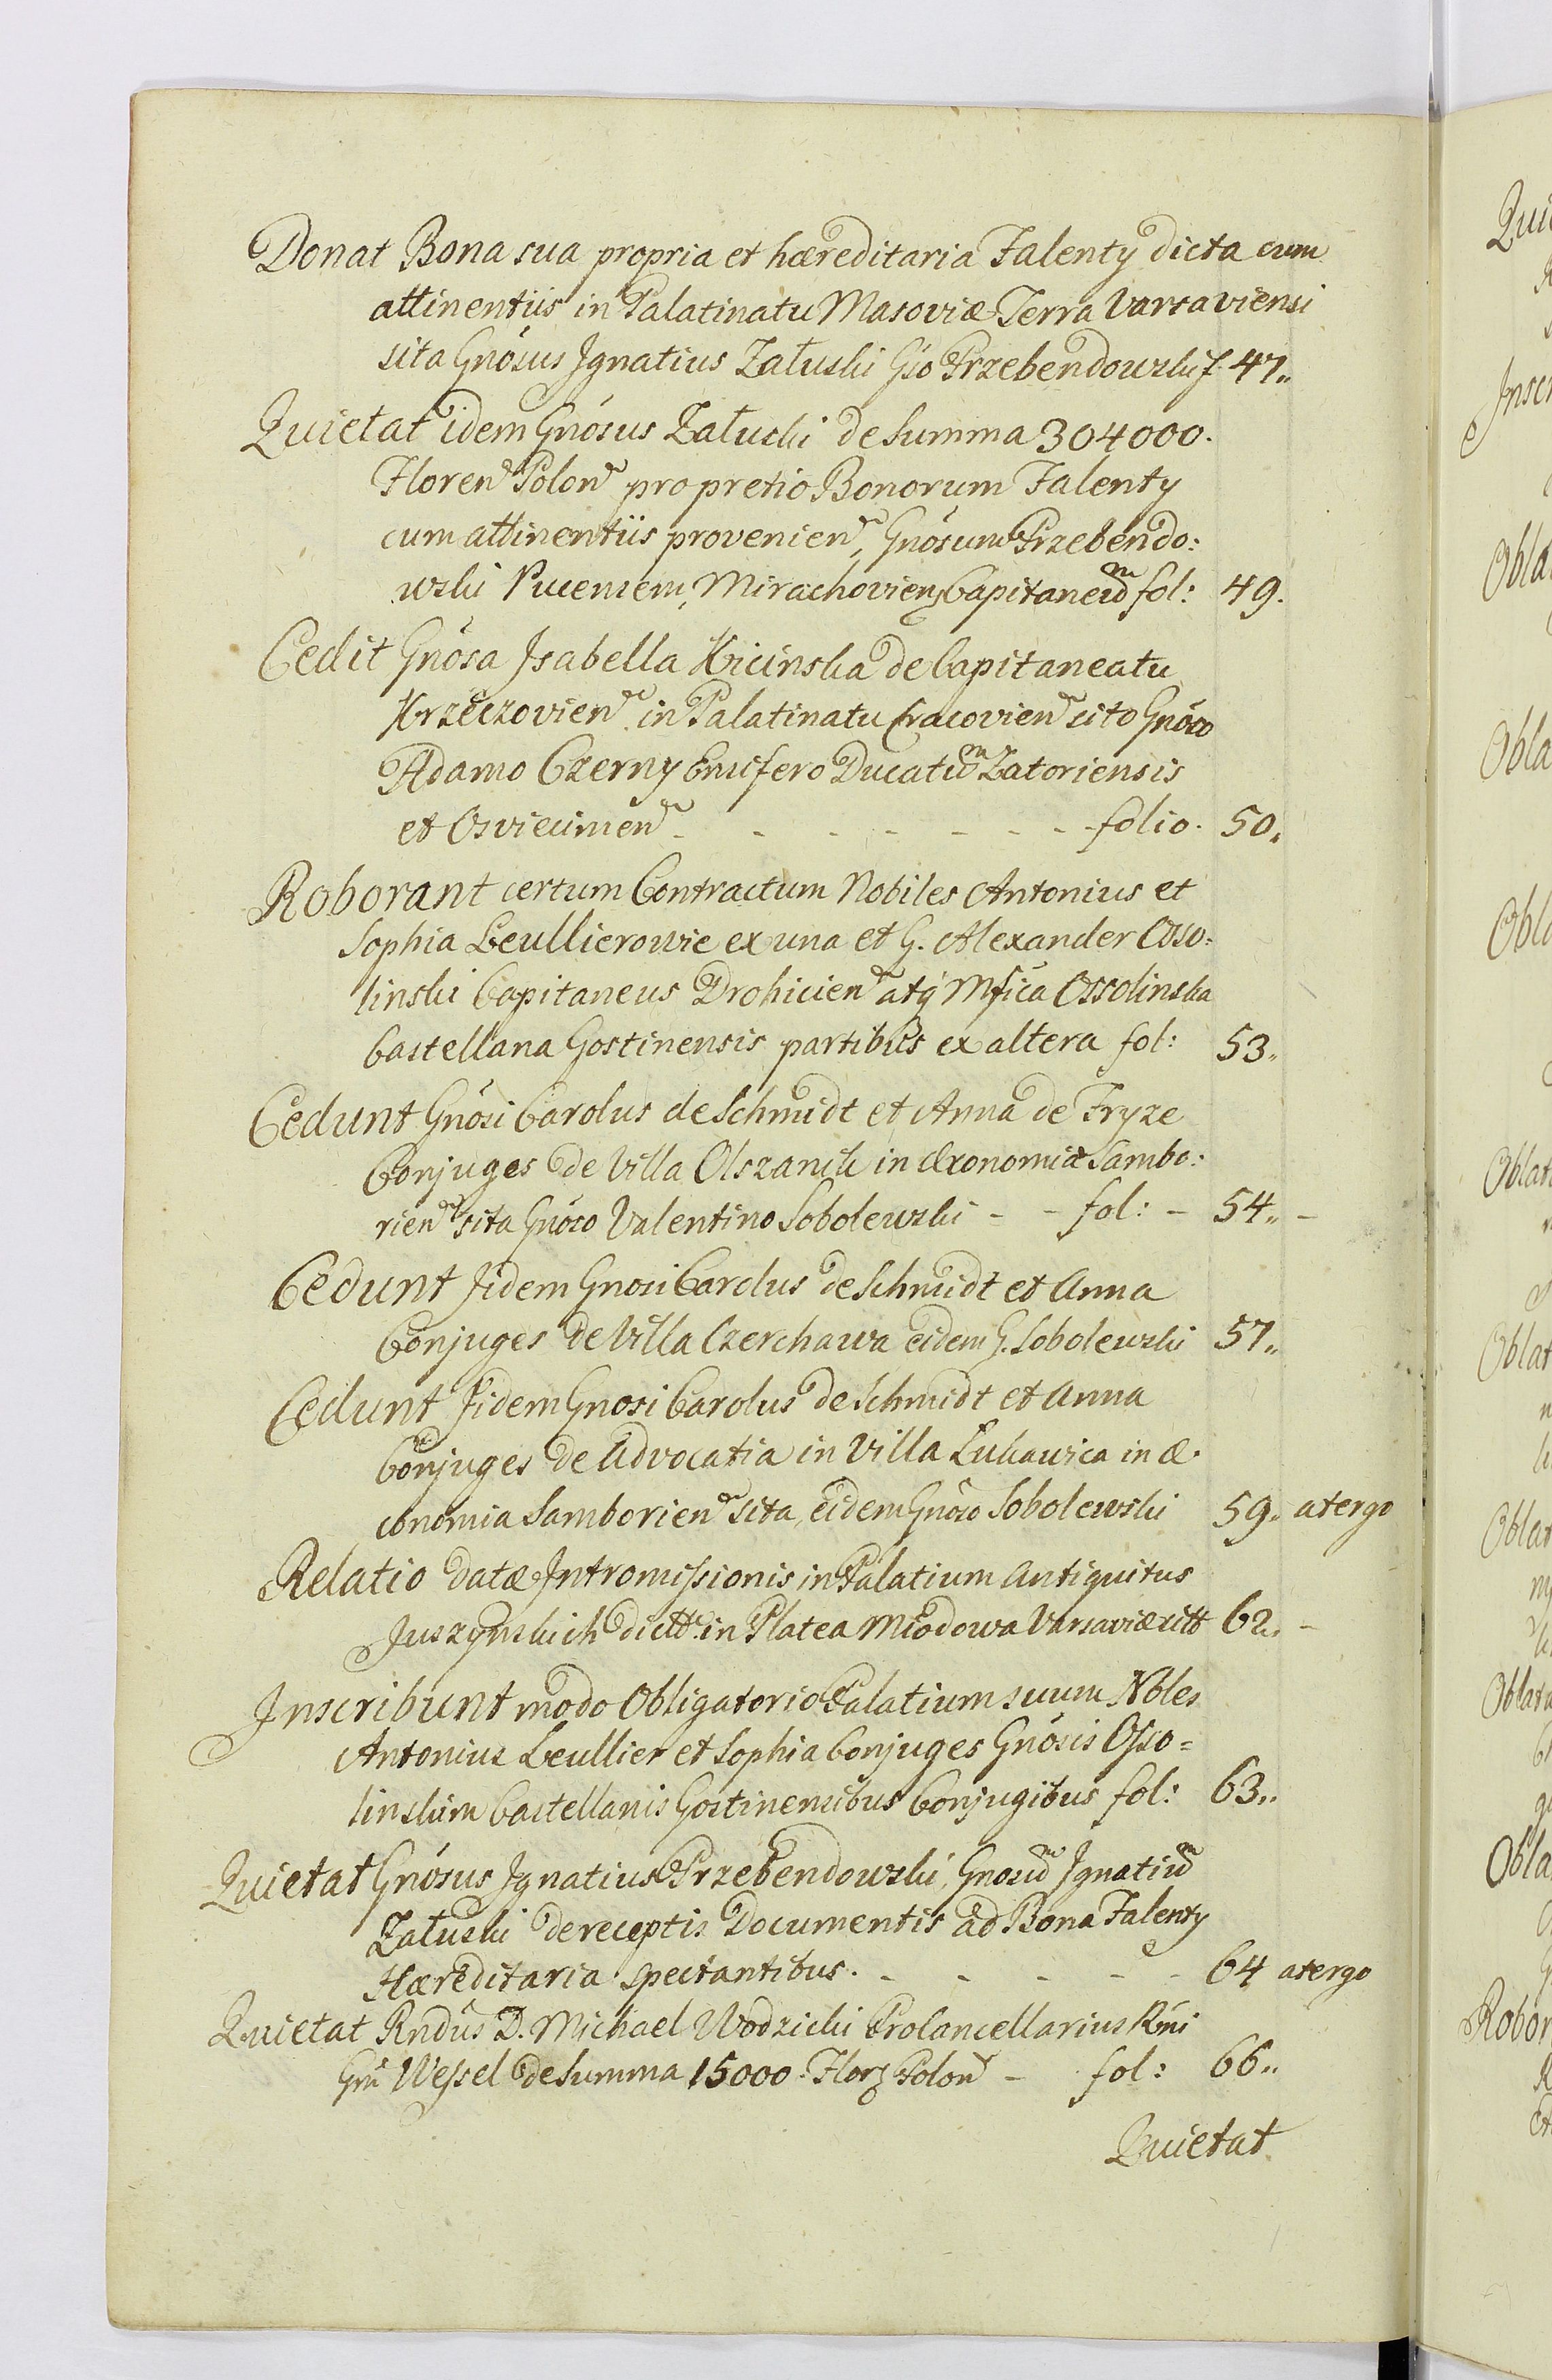 Donat Bona sua propria et hæreditaria Falenty dicta cum
attinentiis in Palatinatu Masoviæ Terra Varsaviensi
sita Gnõsus Jgnatius Załuski Gso Przebendowski f. 47„
Quietat idem Gnõsus Załuski de Summa 304000.
Floren Polon pro pretio Bonorum Falenty
cum attinentiis provenien, Gnõsum Przebendo:
wski Pucensem, Mirachovien Capitaneum fol: 49.
Cedit Gnõsa Jsabella Kicinska de Capitaneatu
Krzeczovien in Palatinatu Cracovien sito Gnõso
Adamo Czerny Ensifero Ducatuum Zatoriensis
et Osviecimen - - - - - - - folio. 50„
Roborant certum Contractum Nobiles Antonius et
Sophia Leullierowie ex una et G. Alexander Osso:
linski Capitaneus Drohicien atq Mfica Ossolinska
Castellana Gostinensis partibus ex altera fol: 53„
Cedunt Gnõsi Carolus de Schmidt et Anna de Fryze
Conjuges de Villa Olszanik in Œconomia Sambo:
rien sita Gnõso Valentino Sobolewski - - fol: - 54„ -
Cedunt Jidem Gnosi Carolus de Schmidt et Anna
Conjuges de Villa Czerchawa eidem G. Sobolewski 57„
Cedunt Jidem Gnosi Carolus de Schmidt et Anna
Conjuges de Advocatia in Villa Łukawica in œ-
conomia Samborien sita, eidem Gnõso Sobolewski 59„ atergo
Relatio datæ Intromissionis in Palatium Antiquitus
Juszynskich dictt. in Platea Miodowa Varsaviæ sitt 62„ -
Jnscribunt modo Obligatorio Palatium suum Nbles
Antonius Leullier et Sophia Conjuges Gnõsis Osso=
linskim Castellanis Gostinensibus Conjugibus fol: 63„
Quietat Gnõsus Jgnatius Przebendowski, Gnosum Jgnatium
Załuski de receptis Documentis ad Bona Falenty
Hæreditaria spectantibus. - - - - - 64 atergo
Quietat Rndus D. Michael Wodzicki Procancellarius Rni
Gñi Wessel de Summa 15000. Flor Polon - fol: 66„
Quietat